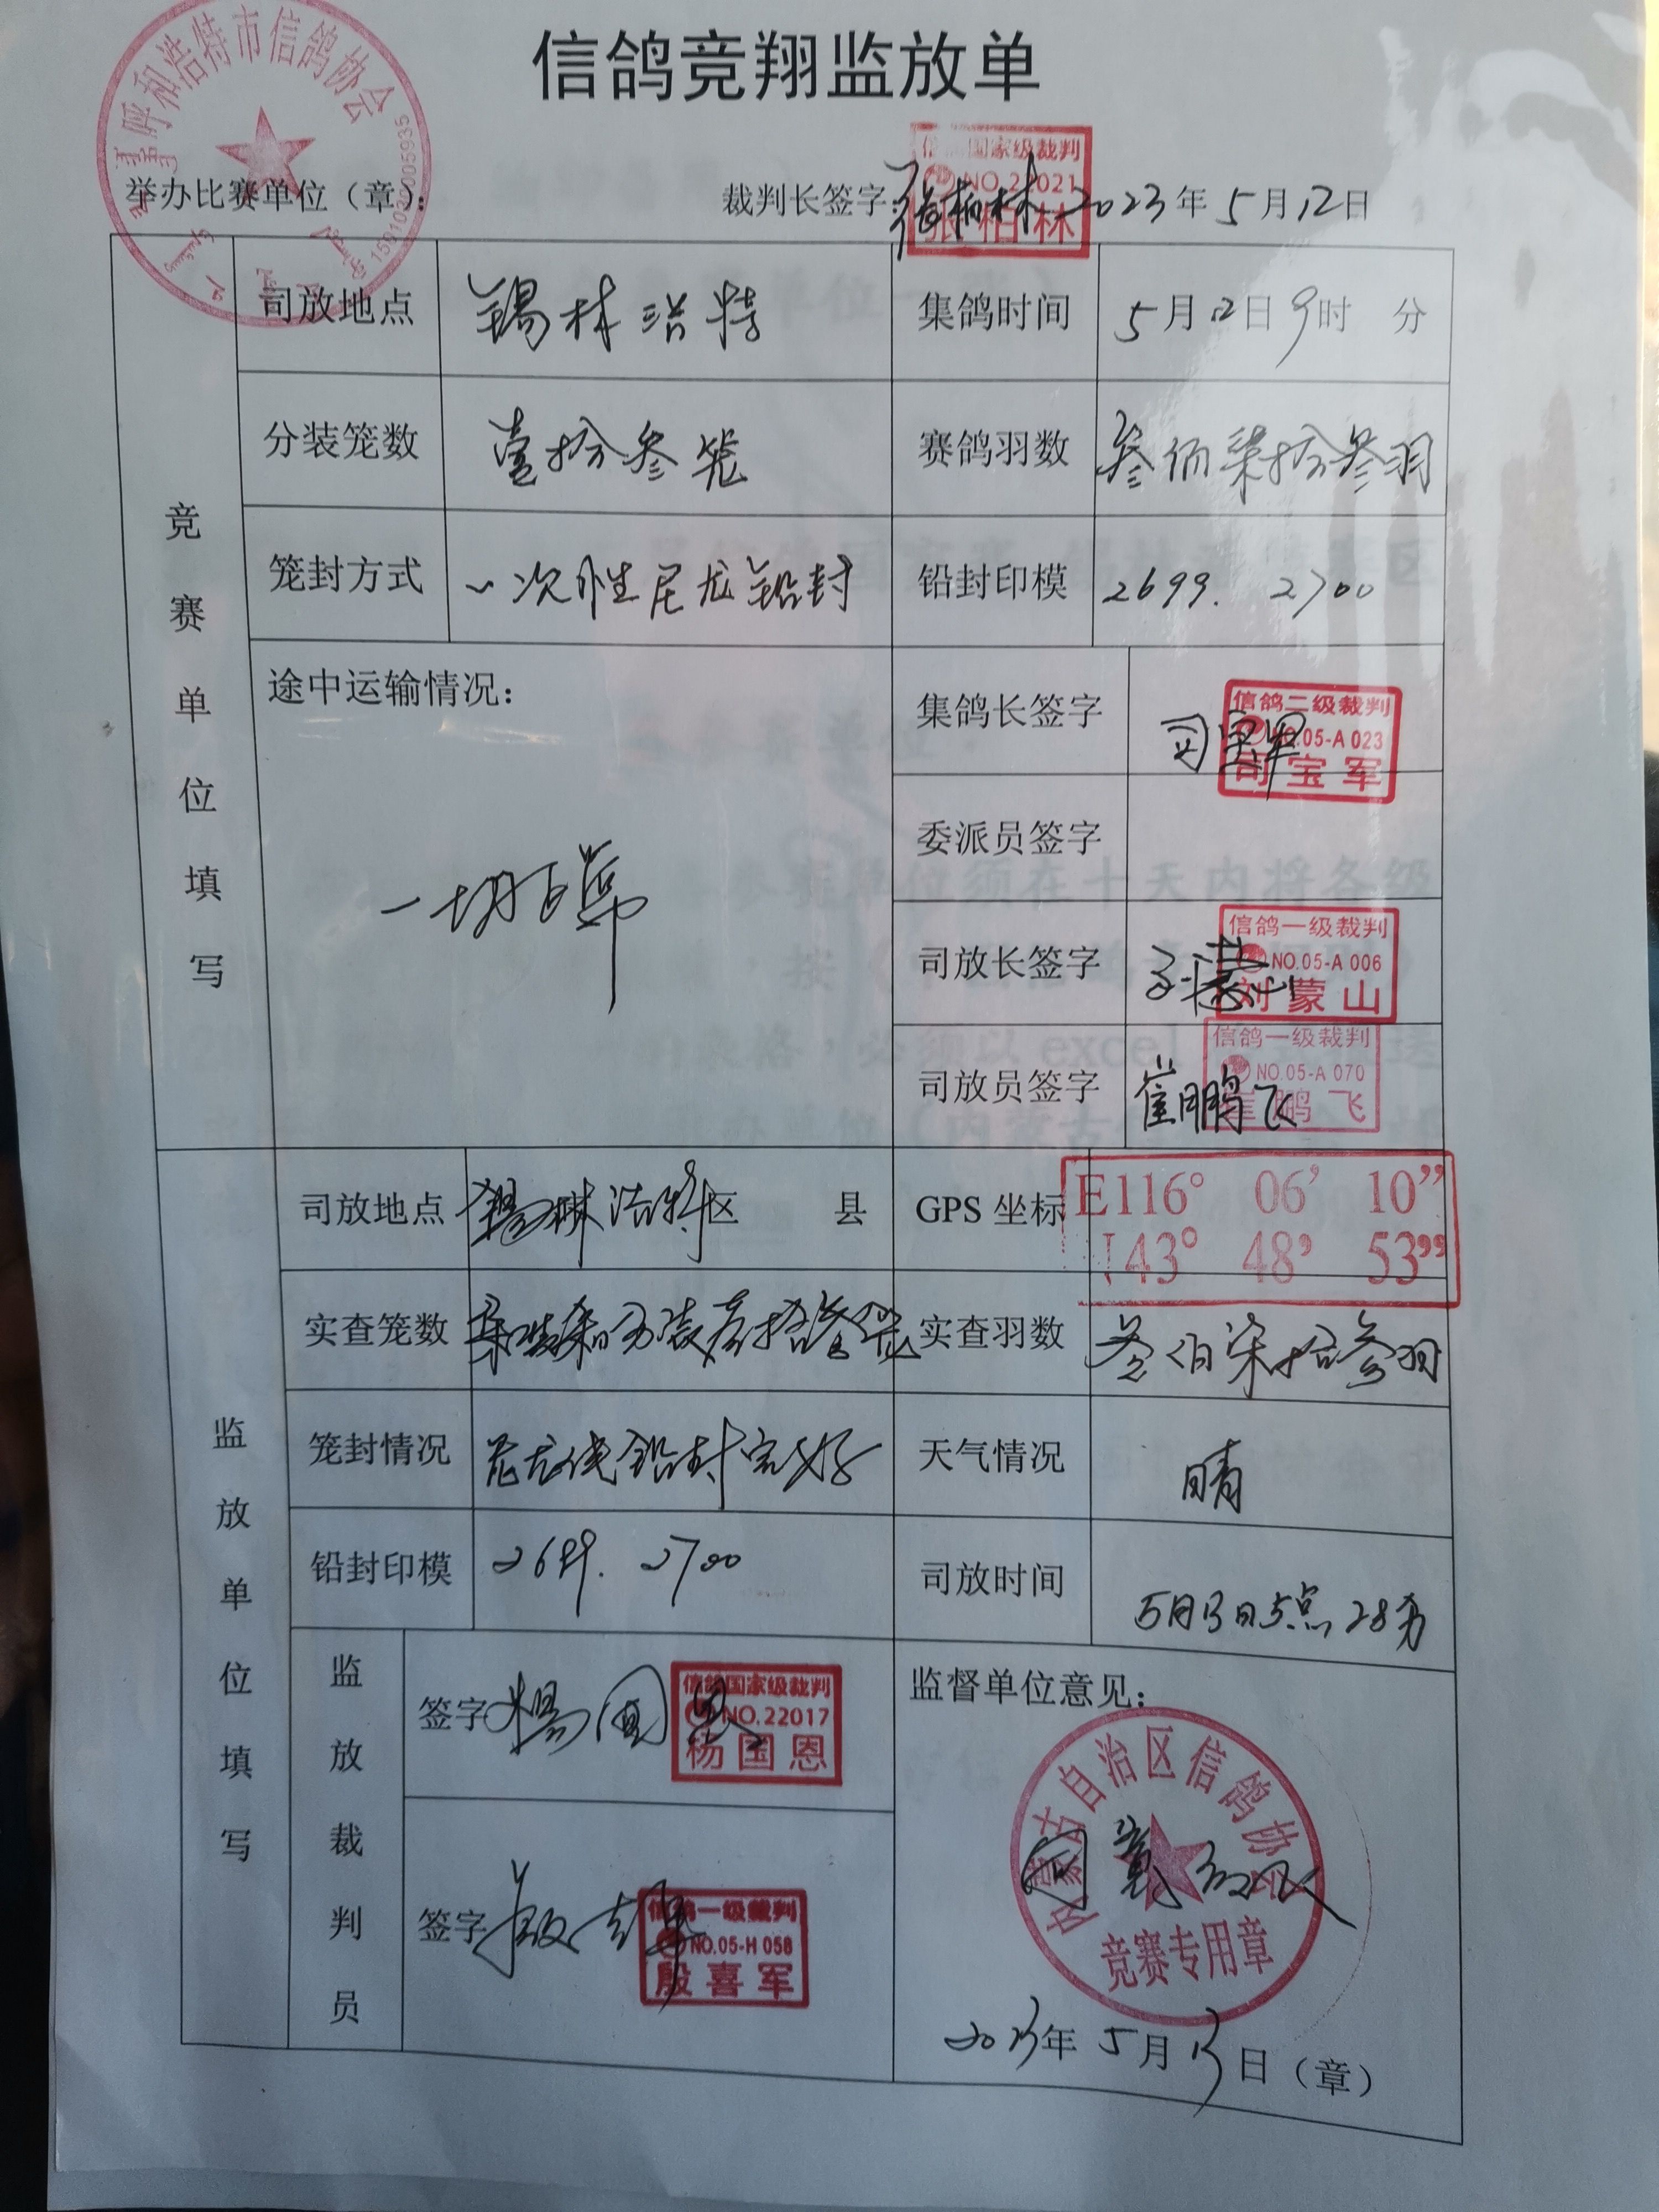 信鸽竞翔监放单
呼和浩特市信鸽协会
举办比赛单位（章）：
裁判长签字：张柏林 2023年5月12日
信鸽国家级裁判
NO.22021
张柏林
竞赛单位填写
司放地点 锡林浩特 集鸽时间 5月12日9时 分
分装笼数 壹拾参笼 赛鸽羽数 叁佰柒拾叁羽
笼封方式 一次性尼龙铅封 铅封印模 2699. 2700
途中运输情况：
一切正常
集鸽长签字 司宝军
信鸽二级裁判
NO.05-A 023
司宝军
委派员签字
司放长签字
信鸽一级裁判
NO.05-A 006
刘蒙山
司放员签字 崔鹏飞
信鸽一级裁判
NO.05-A 070
崔鹏飞
监放单位填写
司放地点 锡林浩特区 县 GPS坐标
E116° 06’ 10”
N43° 48’ 53”
实查笼数 壹拾叁笼 实查羽数 叁佰柒拾叁羽
笼封情况 尼龙线铅封完好 天气情况 晴
铅封印模 2699. 2700 司放时间 5月13日5点28分
监放裁判员
签字 杨国恩
信鸽国家级裁判
NO.22017
杨国恩
签字
信鸽一级裁判
NO.05-H 058
殷喜军
监督单位意见：
内蒙古自治区信鸽协会
同意放飞
竞赛专用章
2023年5月13日（章）